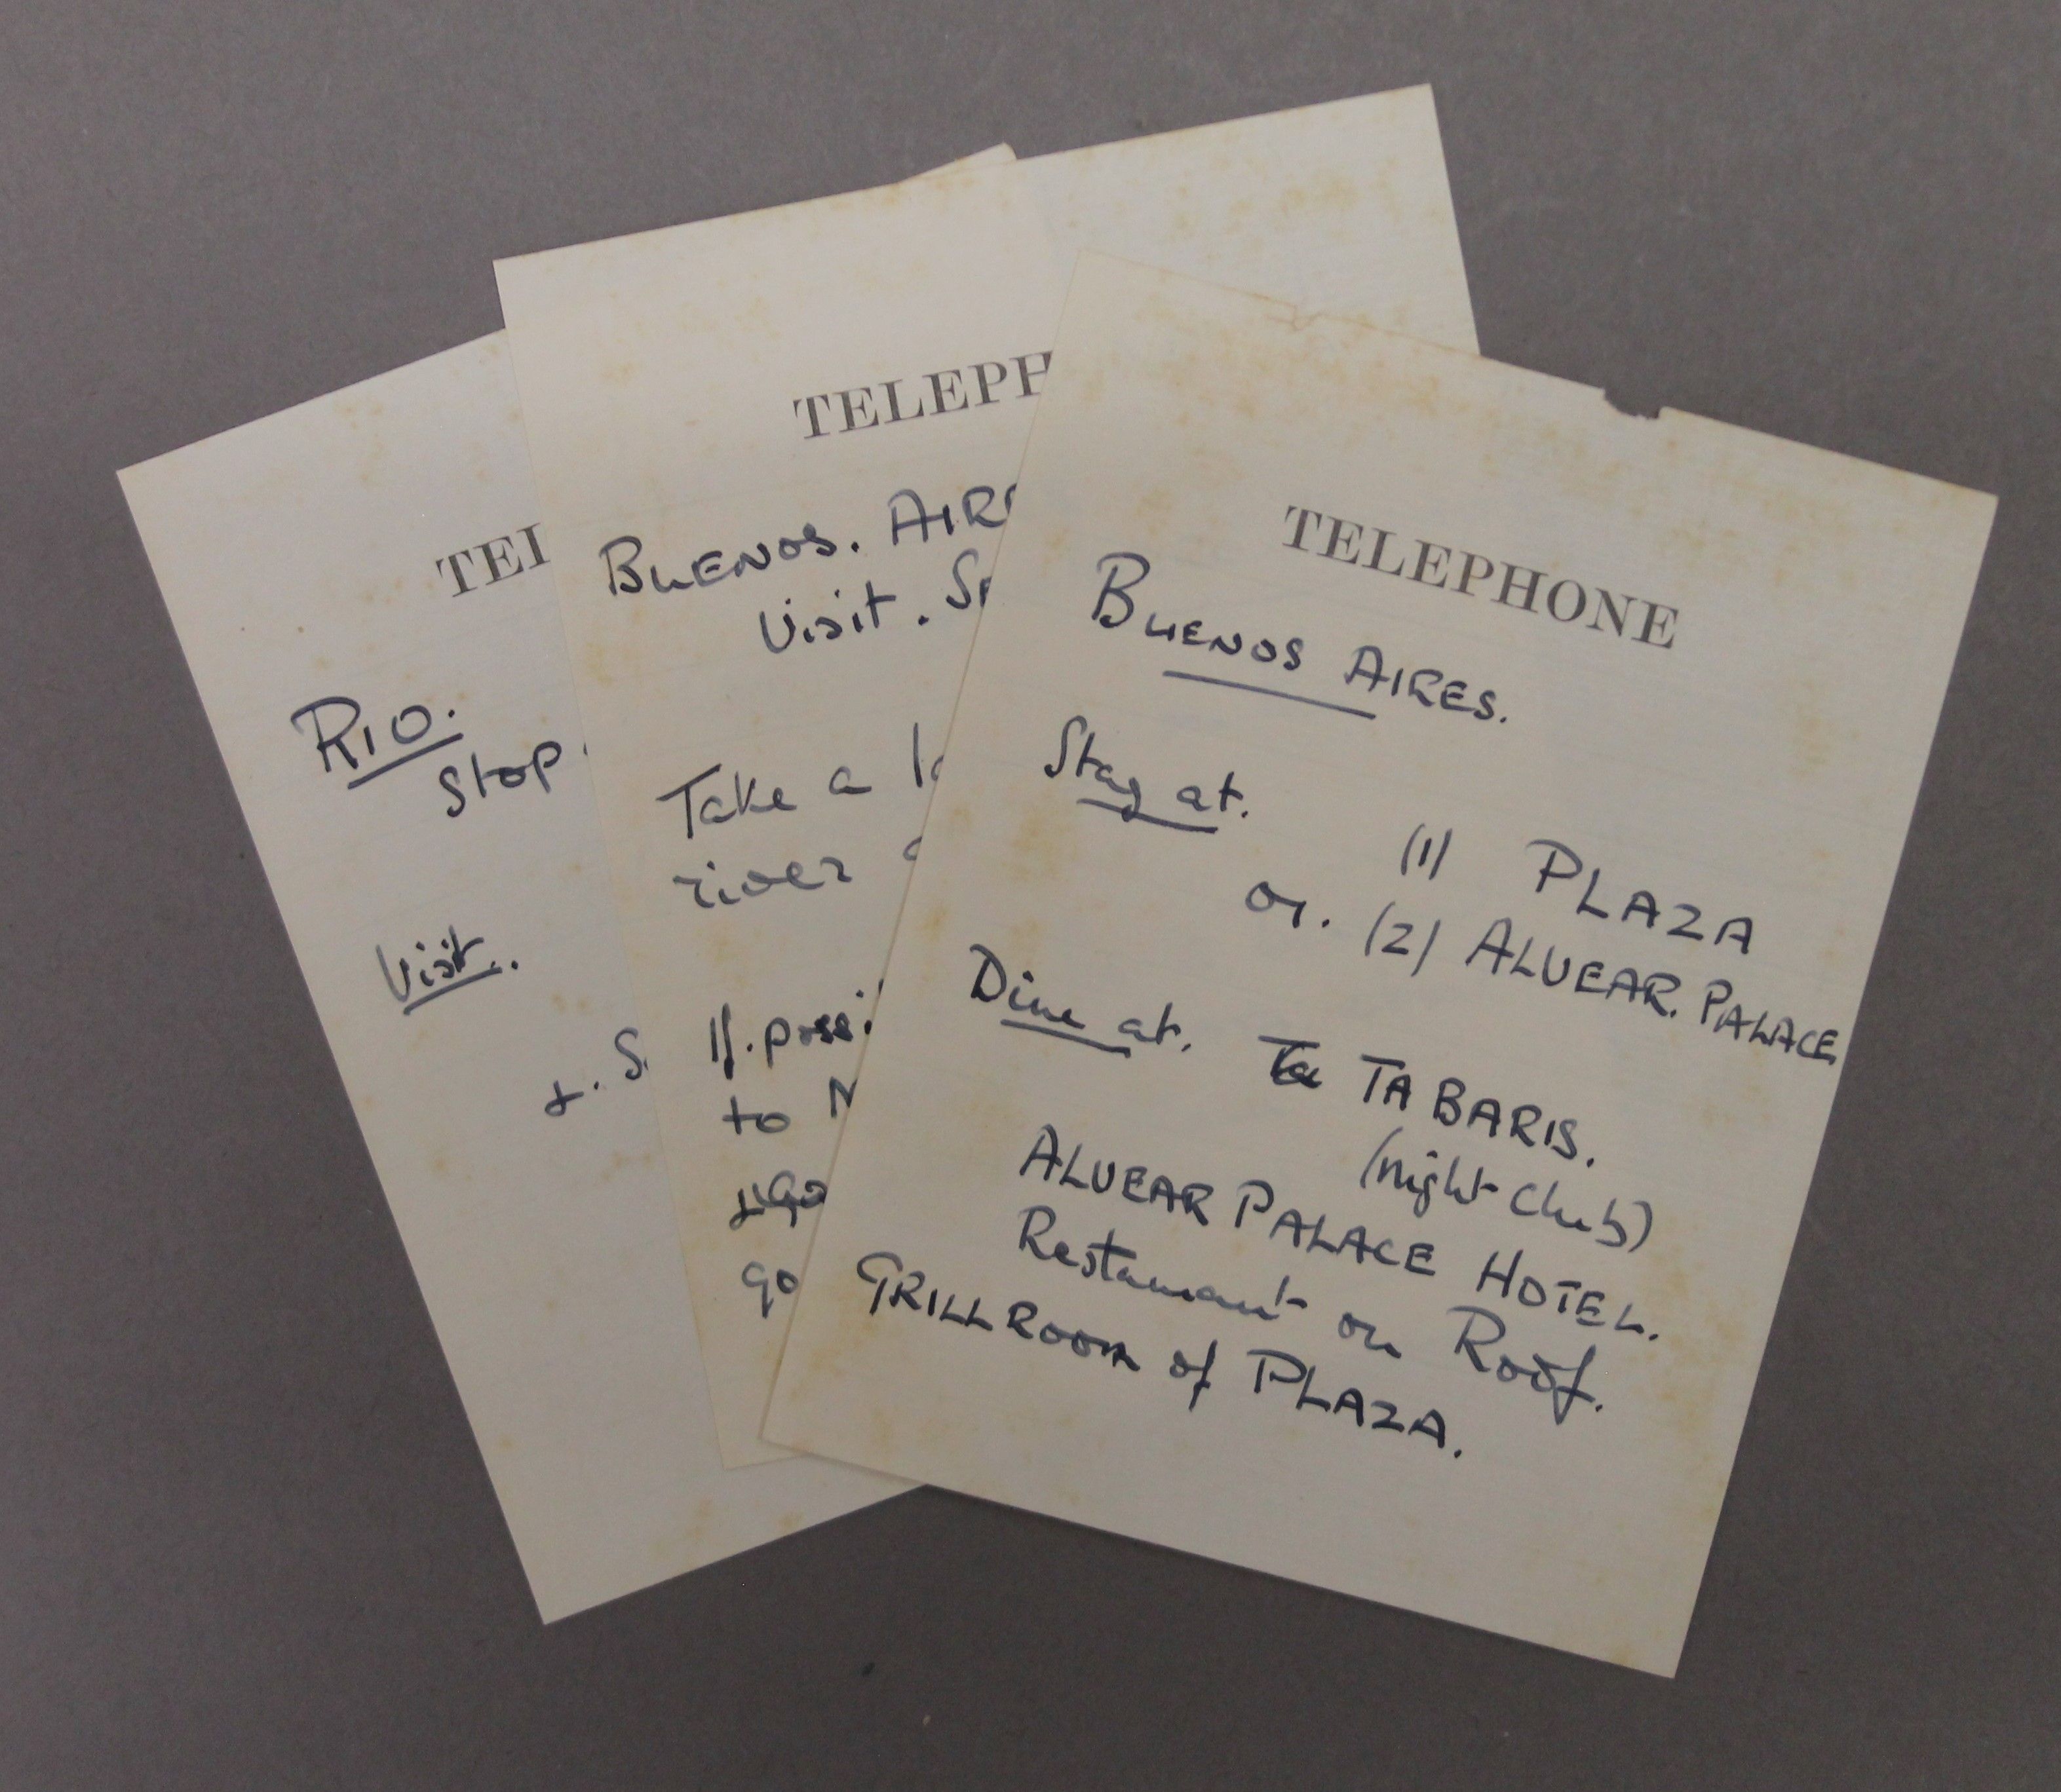 TEL
RIO.
Stop
Visit.
+. S.
TELEPH
BUENOS. AIRE
Visit. Se
Take a
river
If. possi
to
+go
go
TELEPHONE
BUENOS AIRES.
Stay at.
(1) PLAZA
or. (2) ALVEAR. PALACE
Dine at. TABARIS.
(night club)
ALVEAR PALACE HOTEL.
Restaurant on Roof.
GRILL ROOM of PLAZA.